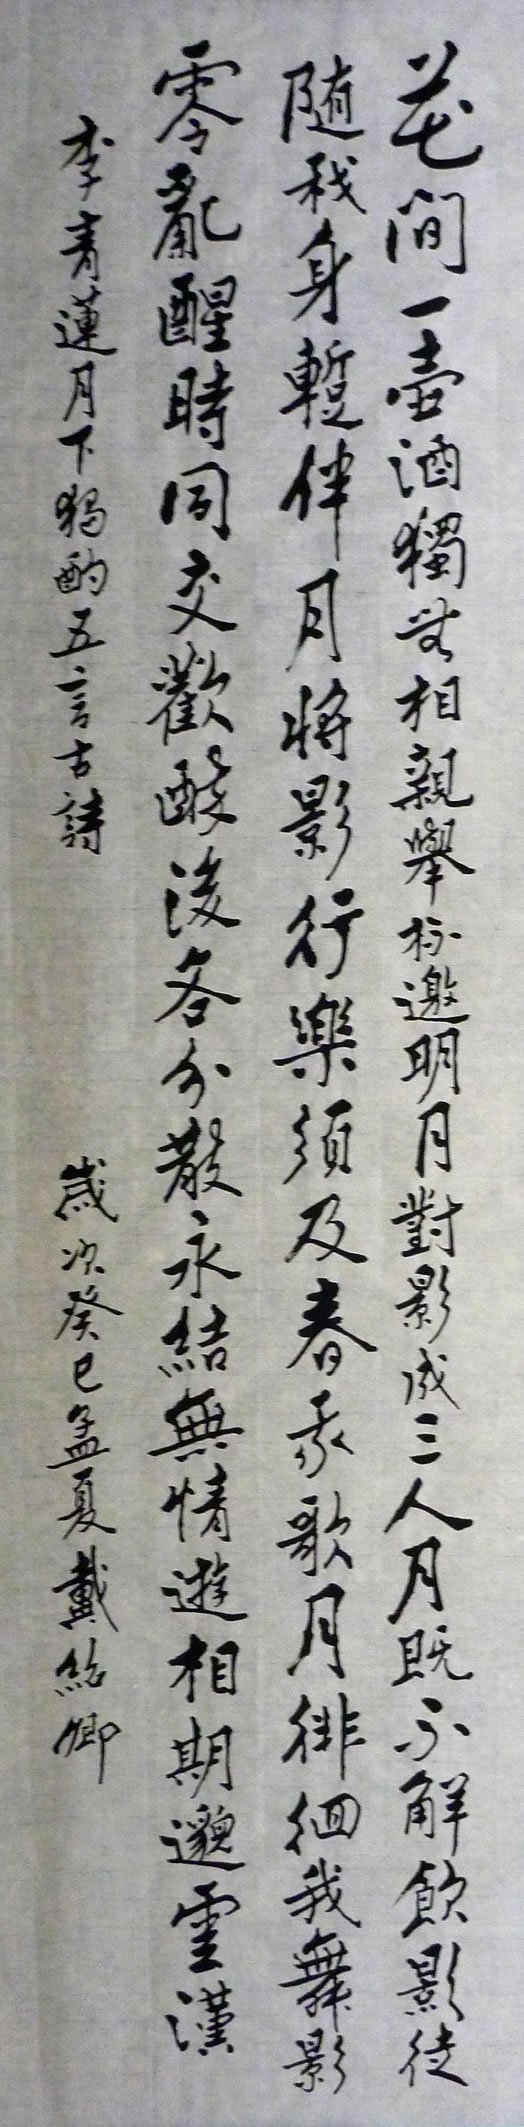 花間一壺酒獨無相親舉杯邀明月對影成三人月既不解飲影徒
隨我身蹔伴月將影行樂須及春我歌月徘徊我舞影
零亂醒時同交歡醉後各分散永結無情遊相期邈雲漢
李青蓮月下獨酌五言古詩
歲次癸巳孟夏戴紹卿